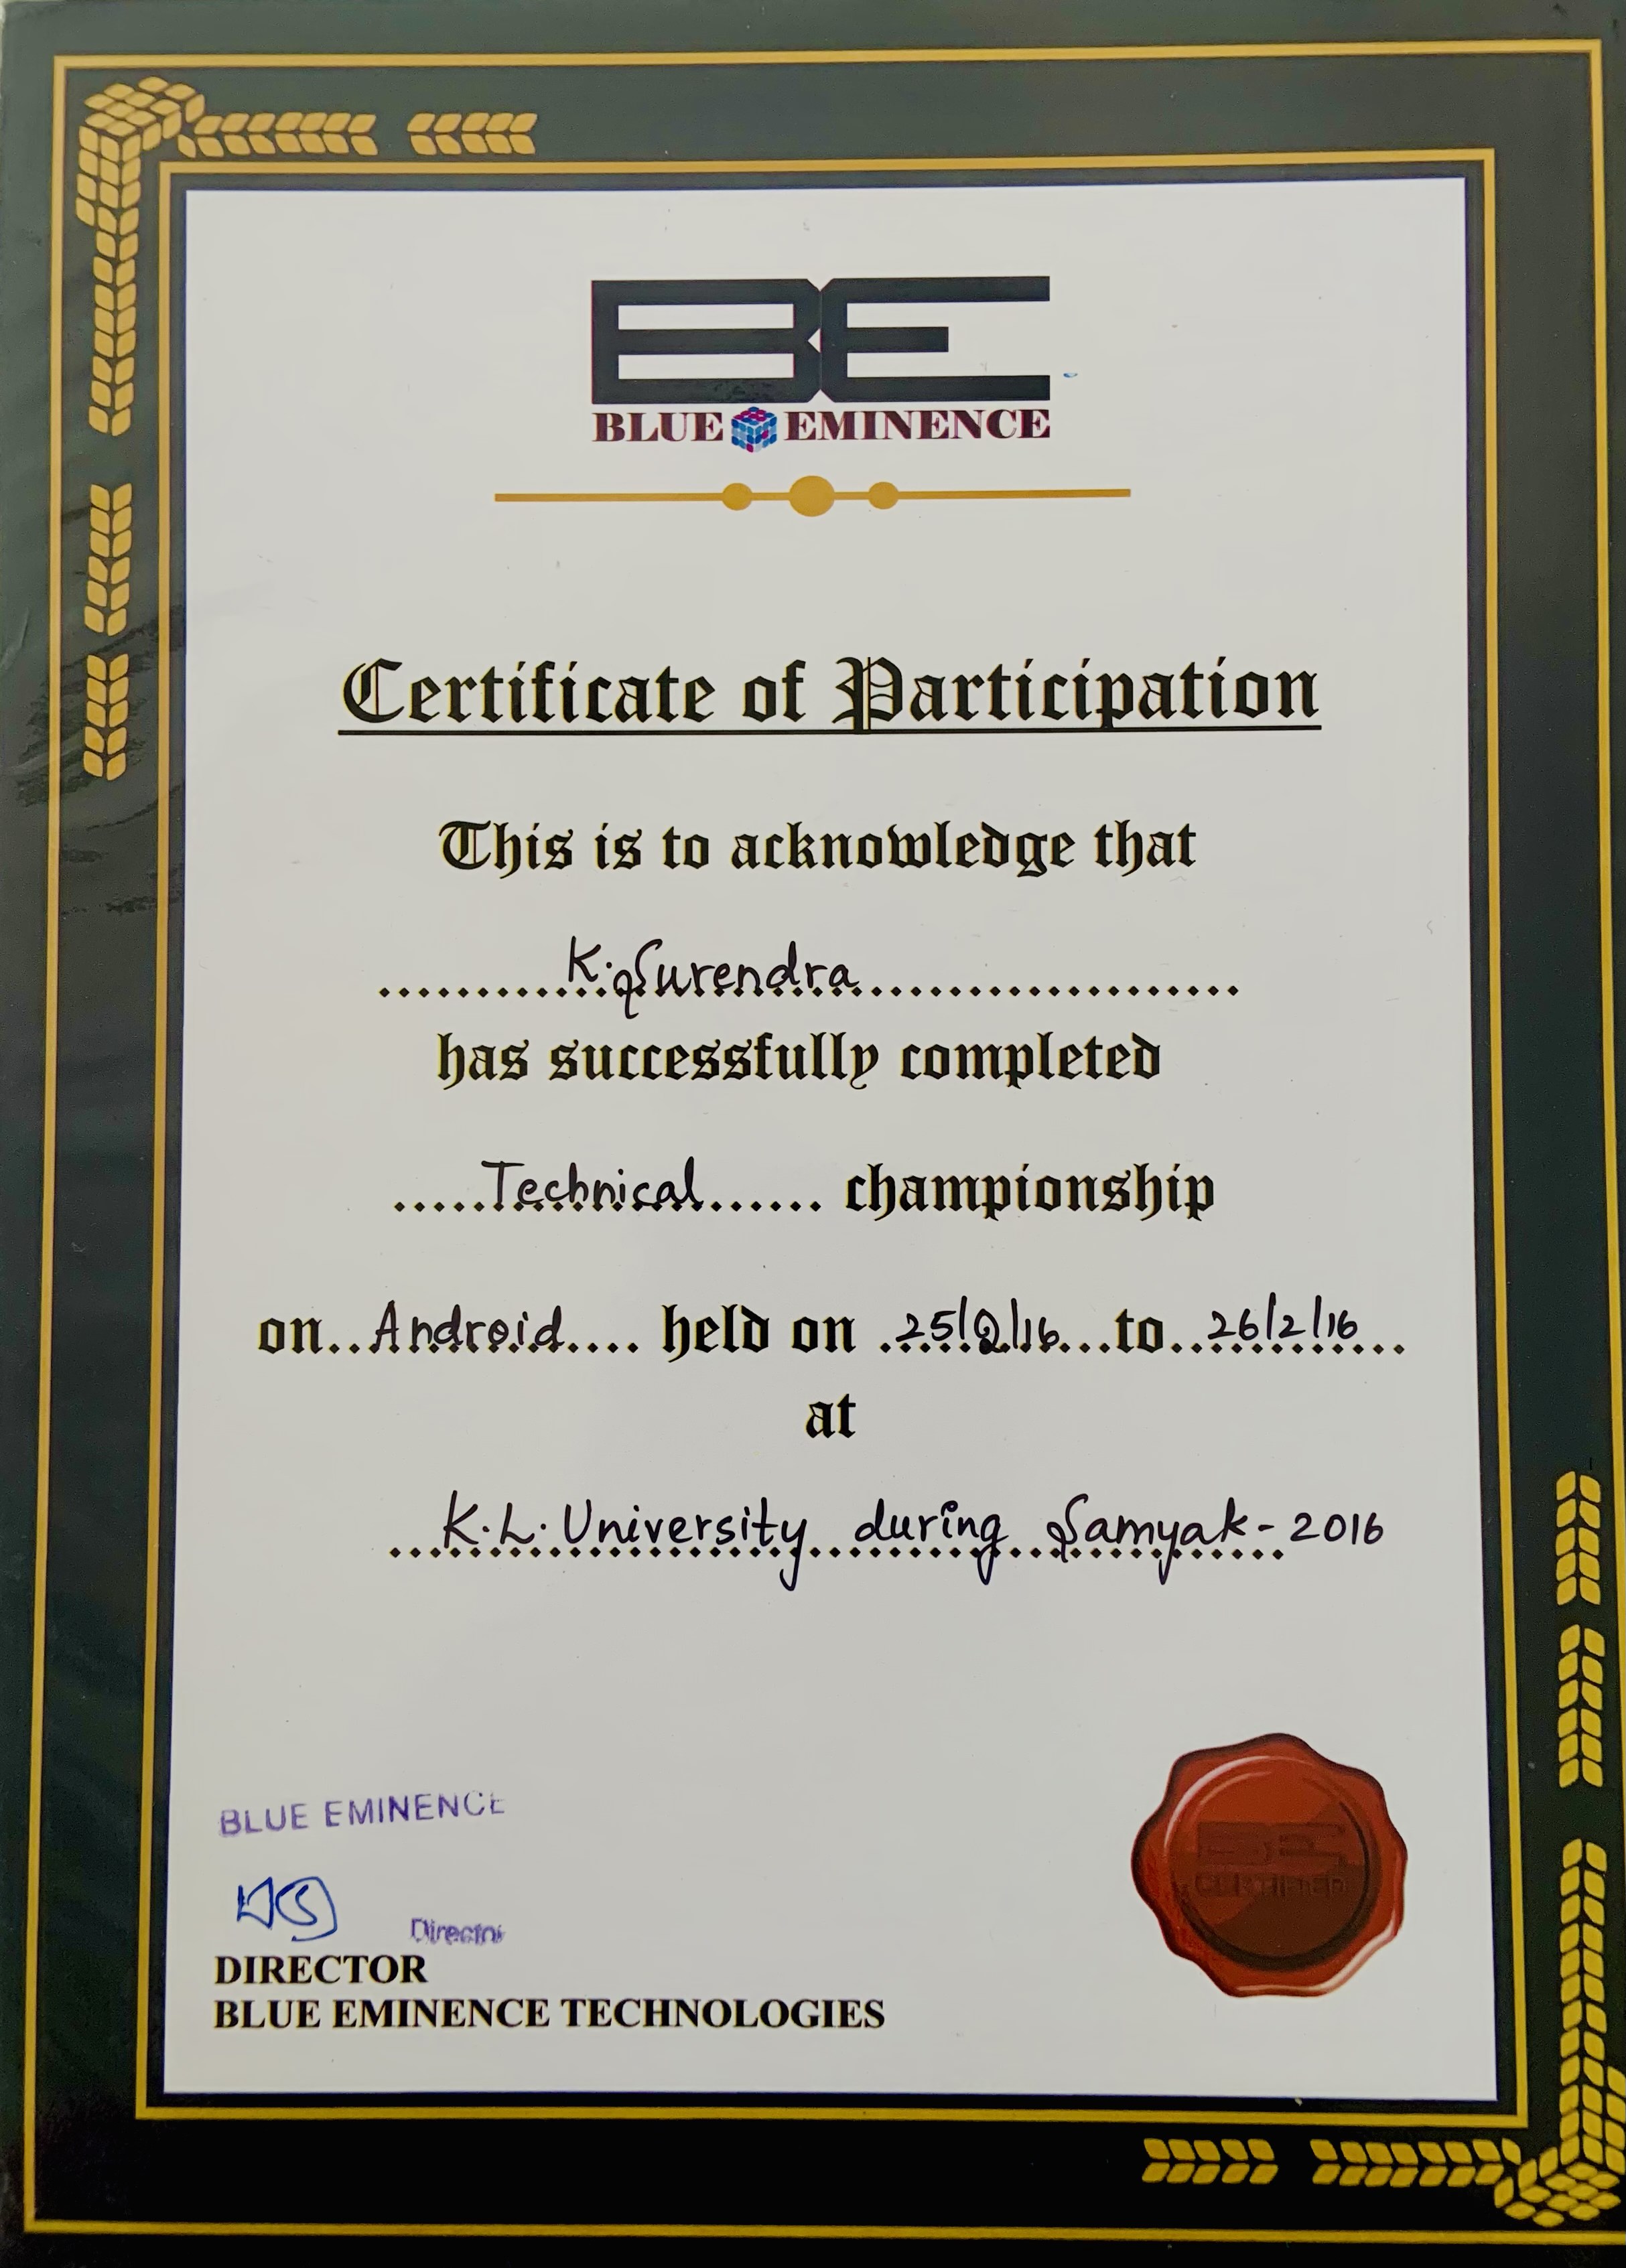 BE
BLUE EMINENCE
Certificate of Participation
This is to acknowledge that
K. Surendra
has successfully completed
Technical championship
on Android held on 25/2/16 to 26/2/16
at
K.L. University during Samyak-2016
BLUE EMINENCE
Director
DIRECTOR
BLUE EMINENCE TECHNOLOGIES
BE
CERTIFIED